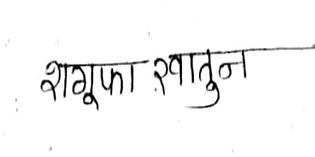 शगूफा खातुन